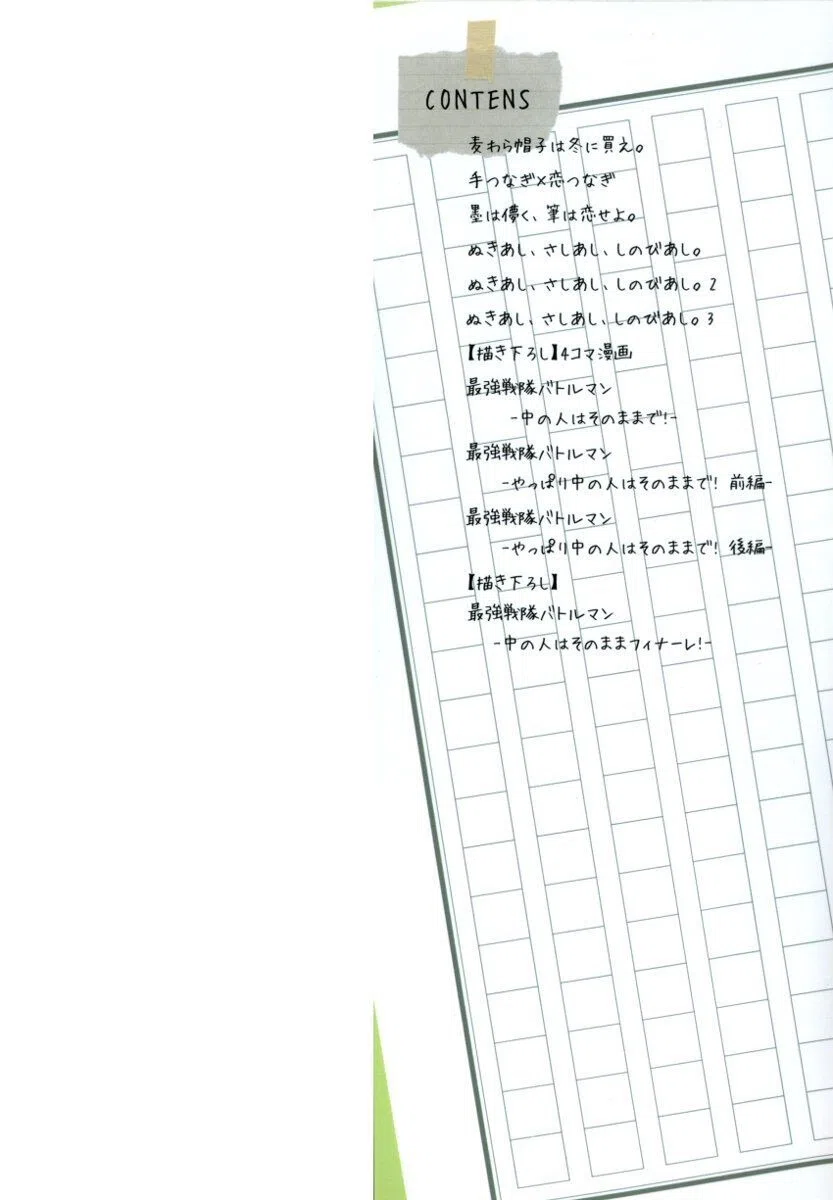 CONTENS
麦わら帽子は冬に買え。
手つなぎ×恋つなぎ
墨は儚く、筆は恋せよ。
ぬきあし、さしあし、しのびあし。
ぬきあし、さしあし、しのびあし。2
ぬきあし、さしあし、しのびあし。3
【描き下ろし】4コマ漫画
最強戦隊バトルマン
-中の人はそのままで!-
最強戦隊バトルマン
-やっぱり中の人はそのままで! 前編-
最強戦隊バトルマン
-やっぱり中の人はそのままで! 後編-
【描き下ろし】
最強戦隊バトルマン
-中の人はそのままフィナーレ!-